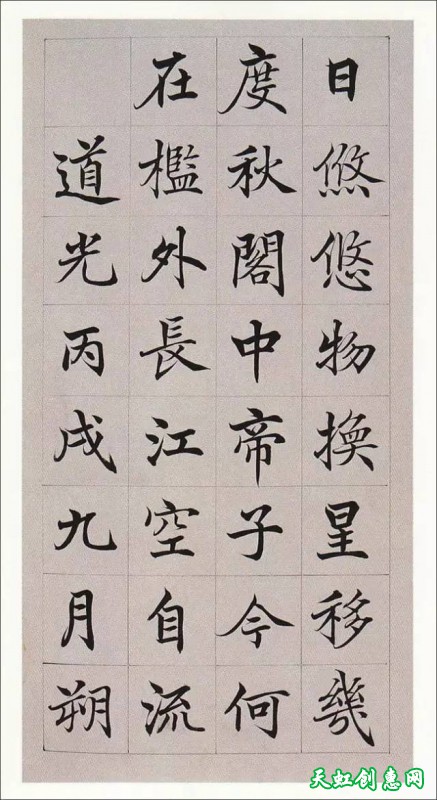 日悠悠物換星移幾
度秋閣中帝子今何
在檻外長江空自流
道光丙戌九月朔
天虹创惠网